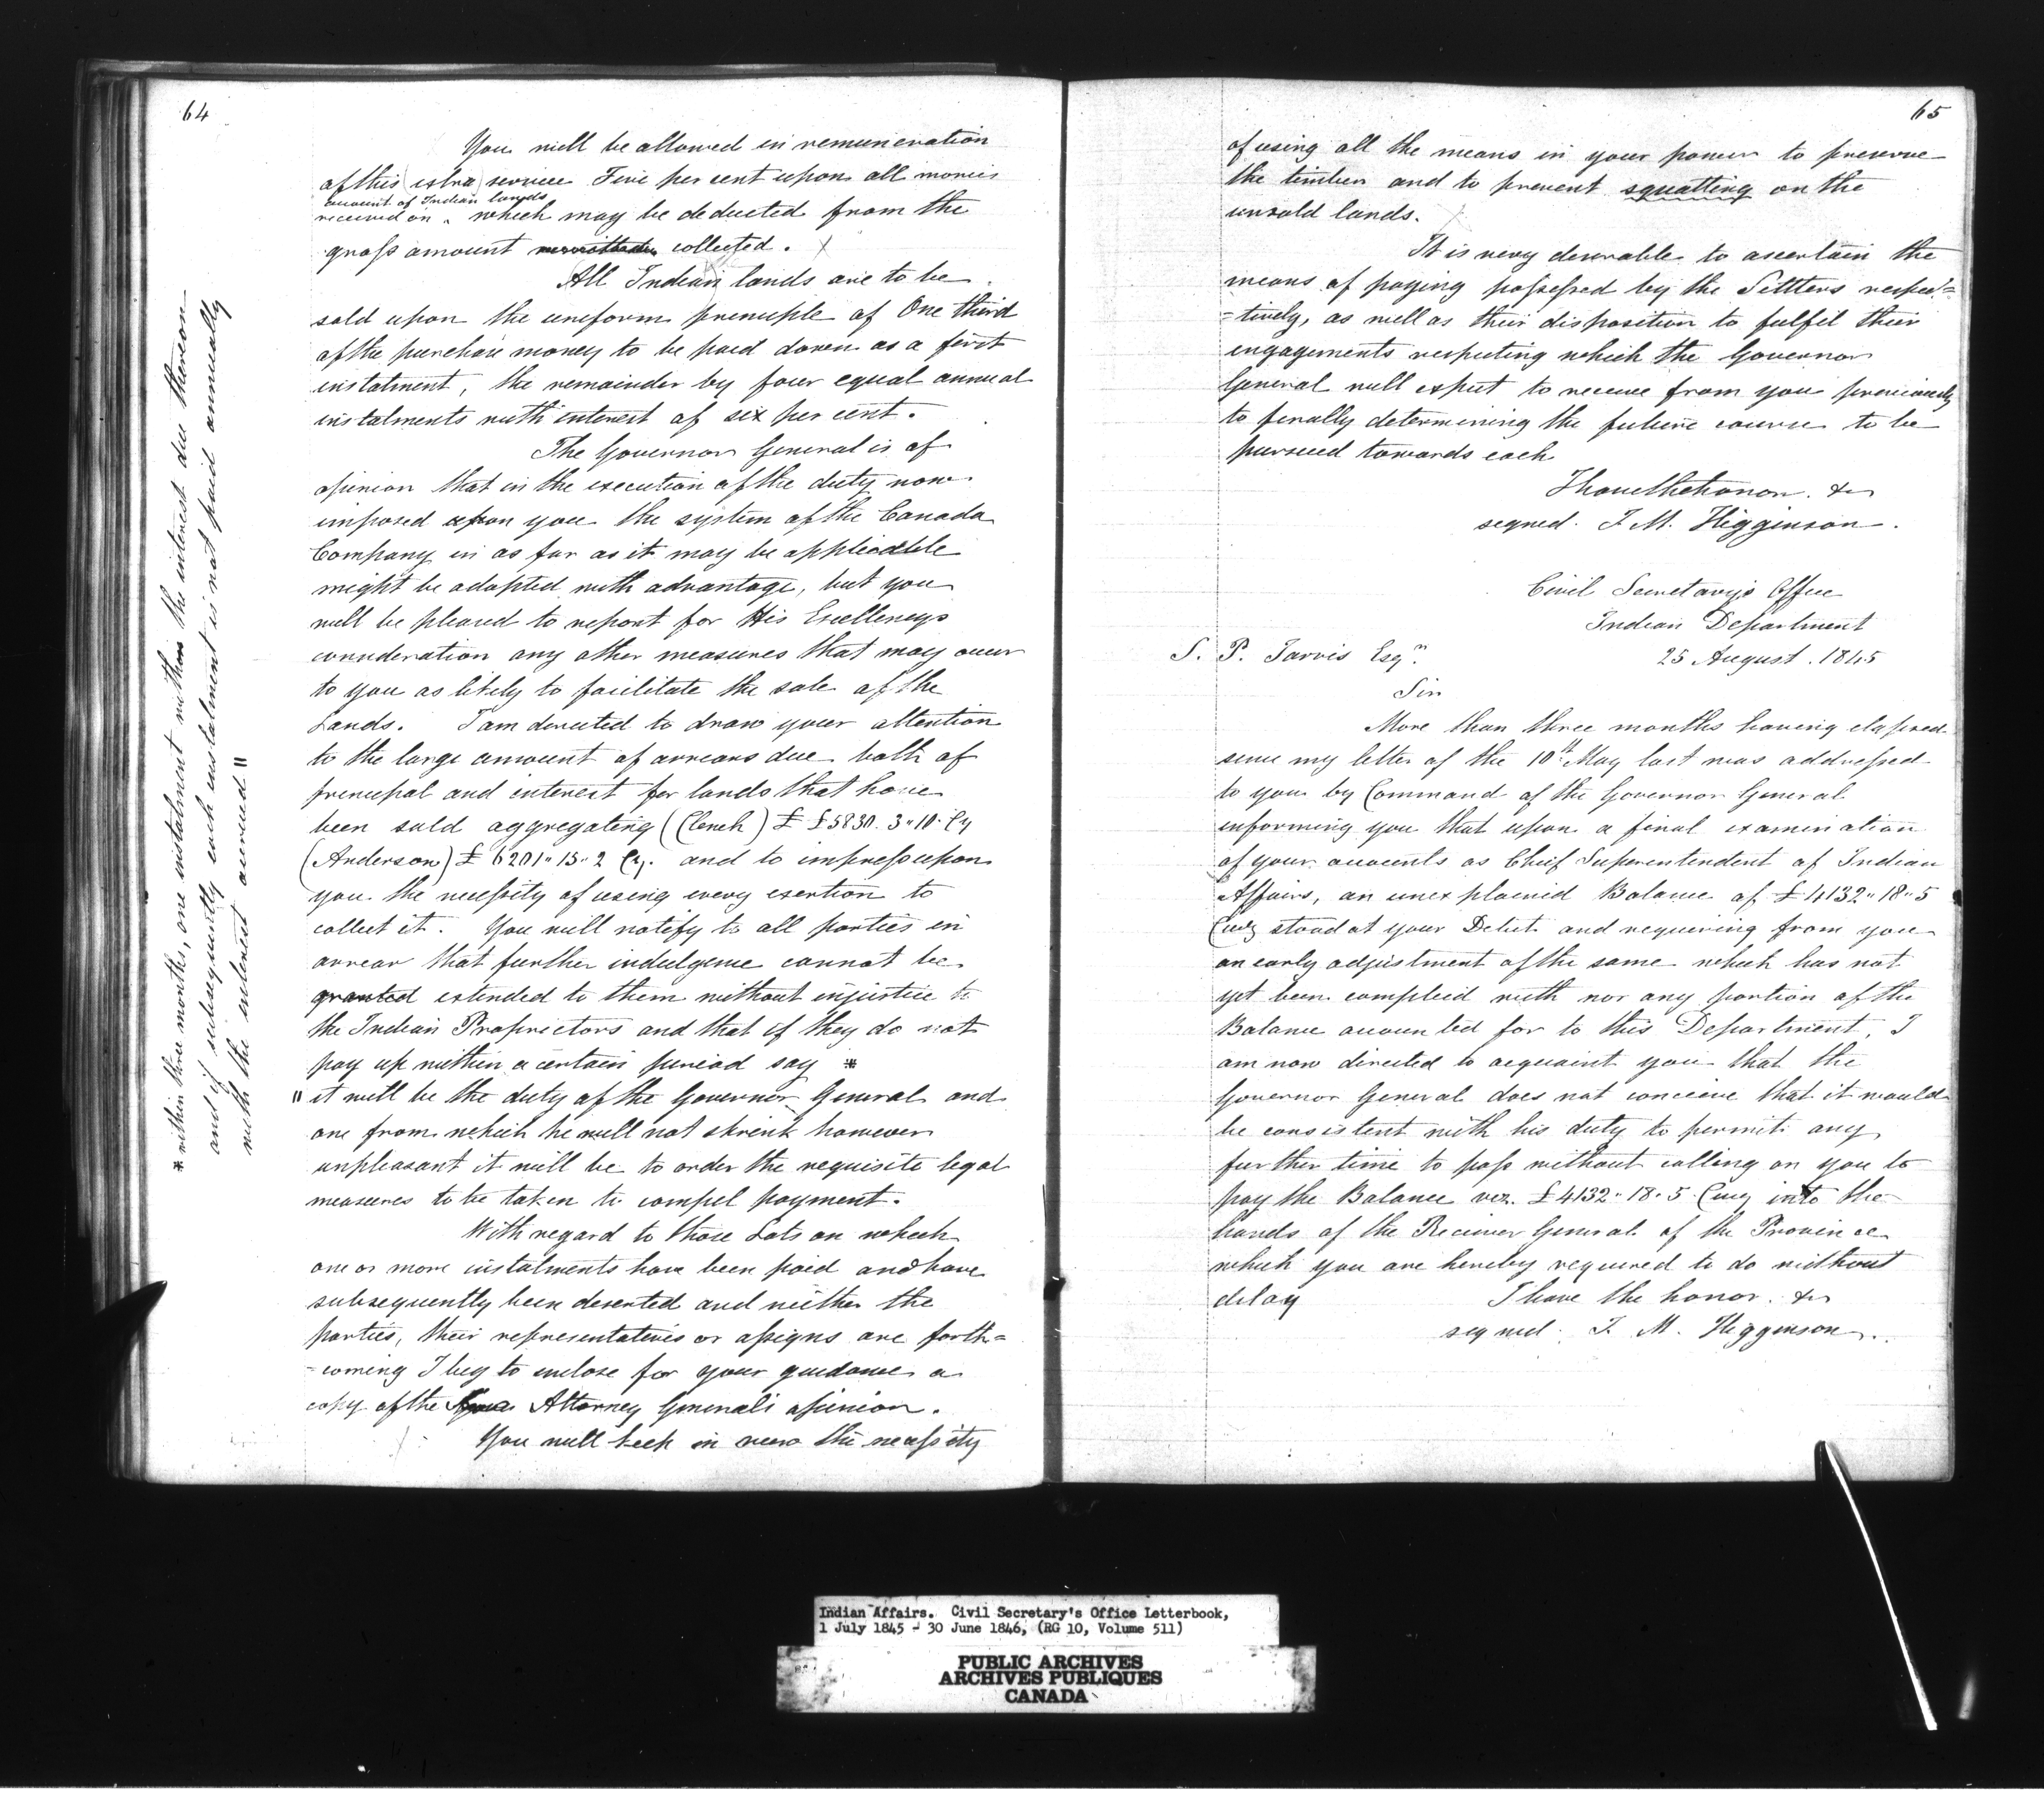 64
You will be allowed in remuneration
of this (extra) service Five per cent upon all monies
account of Indian lands
received on ^ which may be deducted from the
gross amount collected.
All Indian lands are to be
sold upon the uniform principle of One third
of the purchase money to be paid down as a first
instalment, the remainder by four equal annual
instalments with interest of six per cent.
The Governor General is of
opinion that in the execution of the duty now
imposed upon you the system of the Canada
Company in as far as it may be applicable
might be adopted with advantage, but you
will be pleased to report for His Excellencys
consideration any other measures that may occur
to you as likely to facilitate the sale of the
Lands. I am directed to draw your attention
to the large amount of arrears due both of
principal and interest for lands that have
been sold aggregating (Clench) £ £5830.3"10 Cy
(Anderson) £6201"15"2 Cy. and to impress upon
you the necessity of using every exertion to
collect it. You will notify to all parties in
arrear that further indulgence cannot be
granted extended to them without injustice to
the Indian Proprietors and that if they do not
pay up within a certain period say *
" it will be the duty of the Governor General and
one from which he will not shrink however
unpleasant it will be to order the requisite legal
measures to be taken to compel payment.
With regard to those Lots on which
one or more instalments have been paid and have
subsequently been deserted and neither the
parties, their representatives or assigns are forth=
=coming I beg to enclose for your guidance a
copy of the Attorney General's opinion.
You will keep in view the necessity
* within three months, one instalment with the interest due thereon
and if subsequently each instalment is not paid annually
with the interest accrued "
65
of using all the means in your power to preserve
the timber and to prevent squatting on the
unsold lands.
It is very desirable to ascertain the
means of paying possessed by the Settlers respec=
=tively, as well as their disposition to fulfil their
engagements respecting which the Governor
General will expect to receive from you previously
to finally determining the future course to be
pursued towards each
I have the honor. &c
signed. J. M. Higginson.
Civil Secretary's Office
Indian Department
S. P. Jarvis Esqr. 25 August. 1845
Sir
More than three months having elapsed
since my letter of the 10th May last was addressed
to you by Command of the Governor General
informing you that upon a final examination
of your accounts as Chief Superintendent of Indian
Affairs, an unexplained Balance of £4132"18"5
Cucy stood at your Debit and requiring from you
an early adjustment of the same which has not
yet been complied with nor any portion of the
Balance accounted for to this Department, I
am now directed to acquaint you that the
Governor General does not conceive that it would
be consistent with his duty to permit any
further time to pass without calling on you to
pay the Balance viz. £4132"18"5 Cucy into the
hands of the Receiver General of the Province
which you are hereby required to do without
delay I have the honor. &c
signed. J. M. Higginson.
Indian Affairs. Civil Secretary's Office Letterbook,
1 July 1845 - 30 June 1846, (RG 10, Volume 511)
PUBLIC ARCHIVES
ARCHIVES PUBLIQUES
CANADA